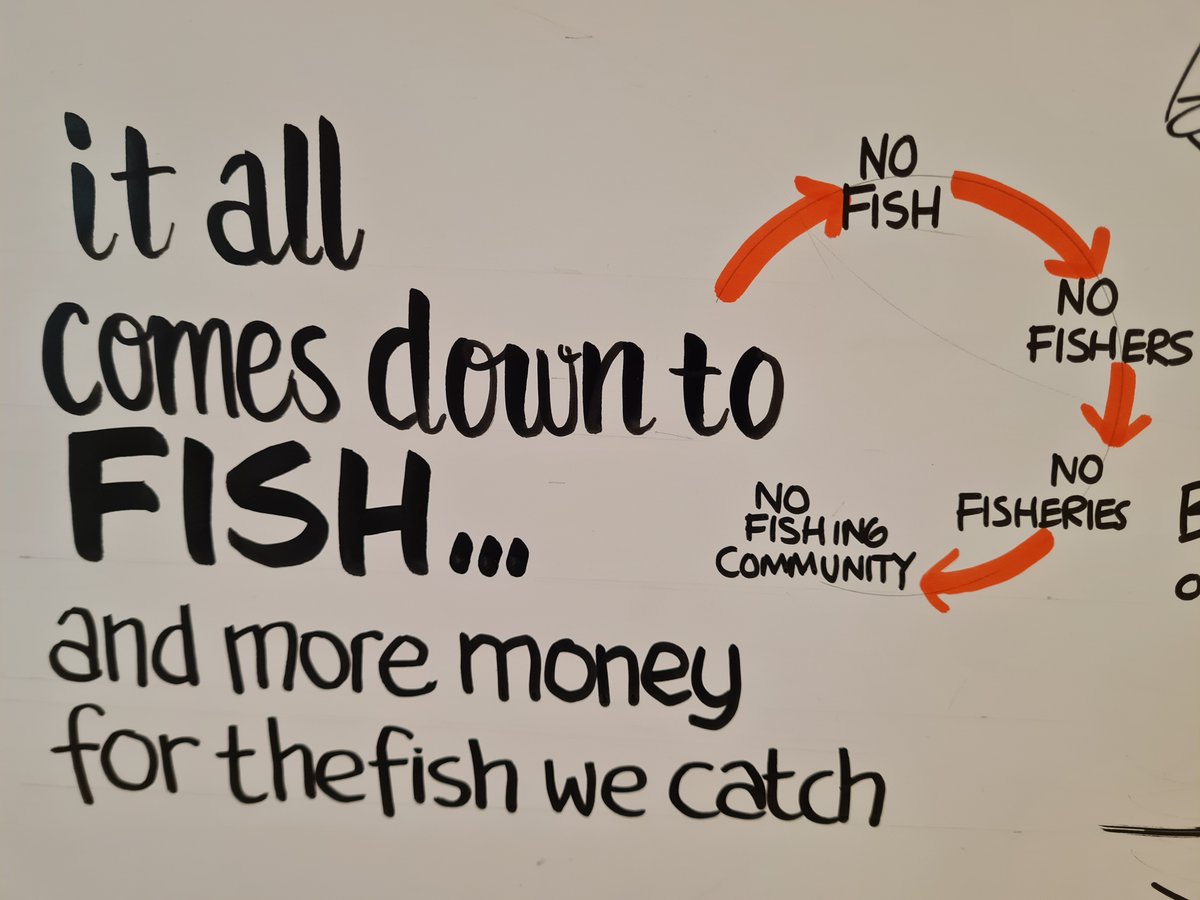 it all
comes down to
FISH...
and more money
for the fish we catch
NO
FISH
NO
FISHERS
NO
FISHERIES
NO
FISHING
COMMUNITY